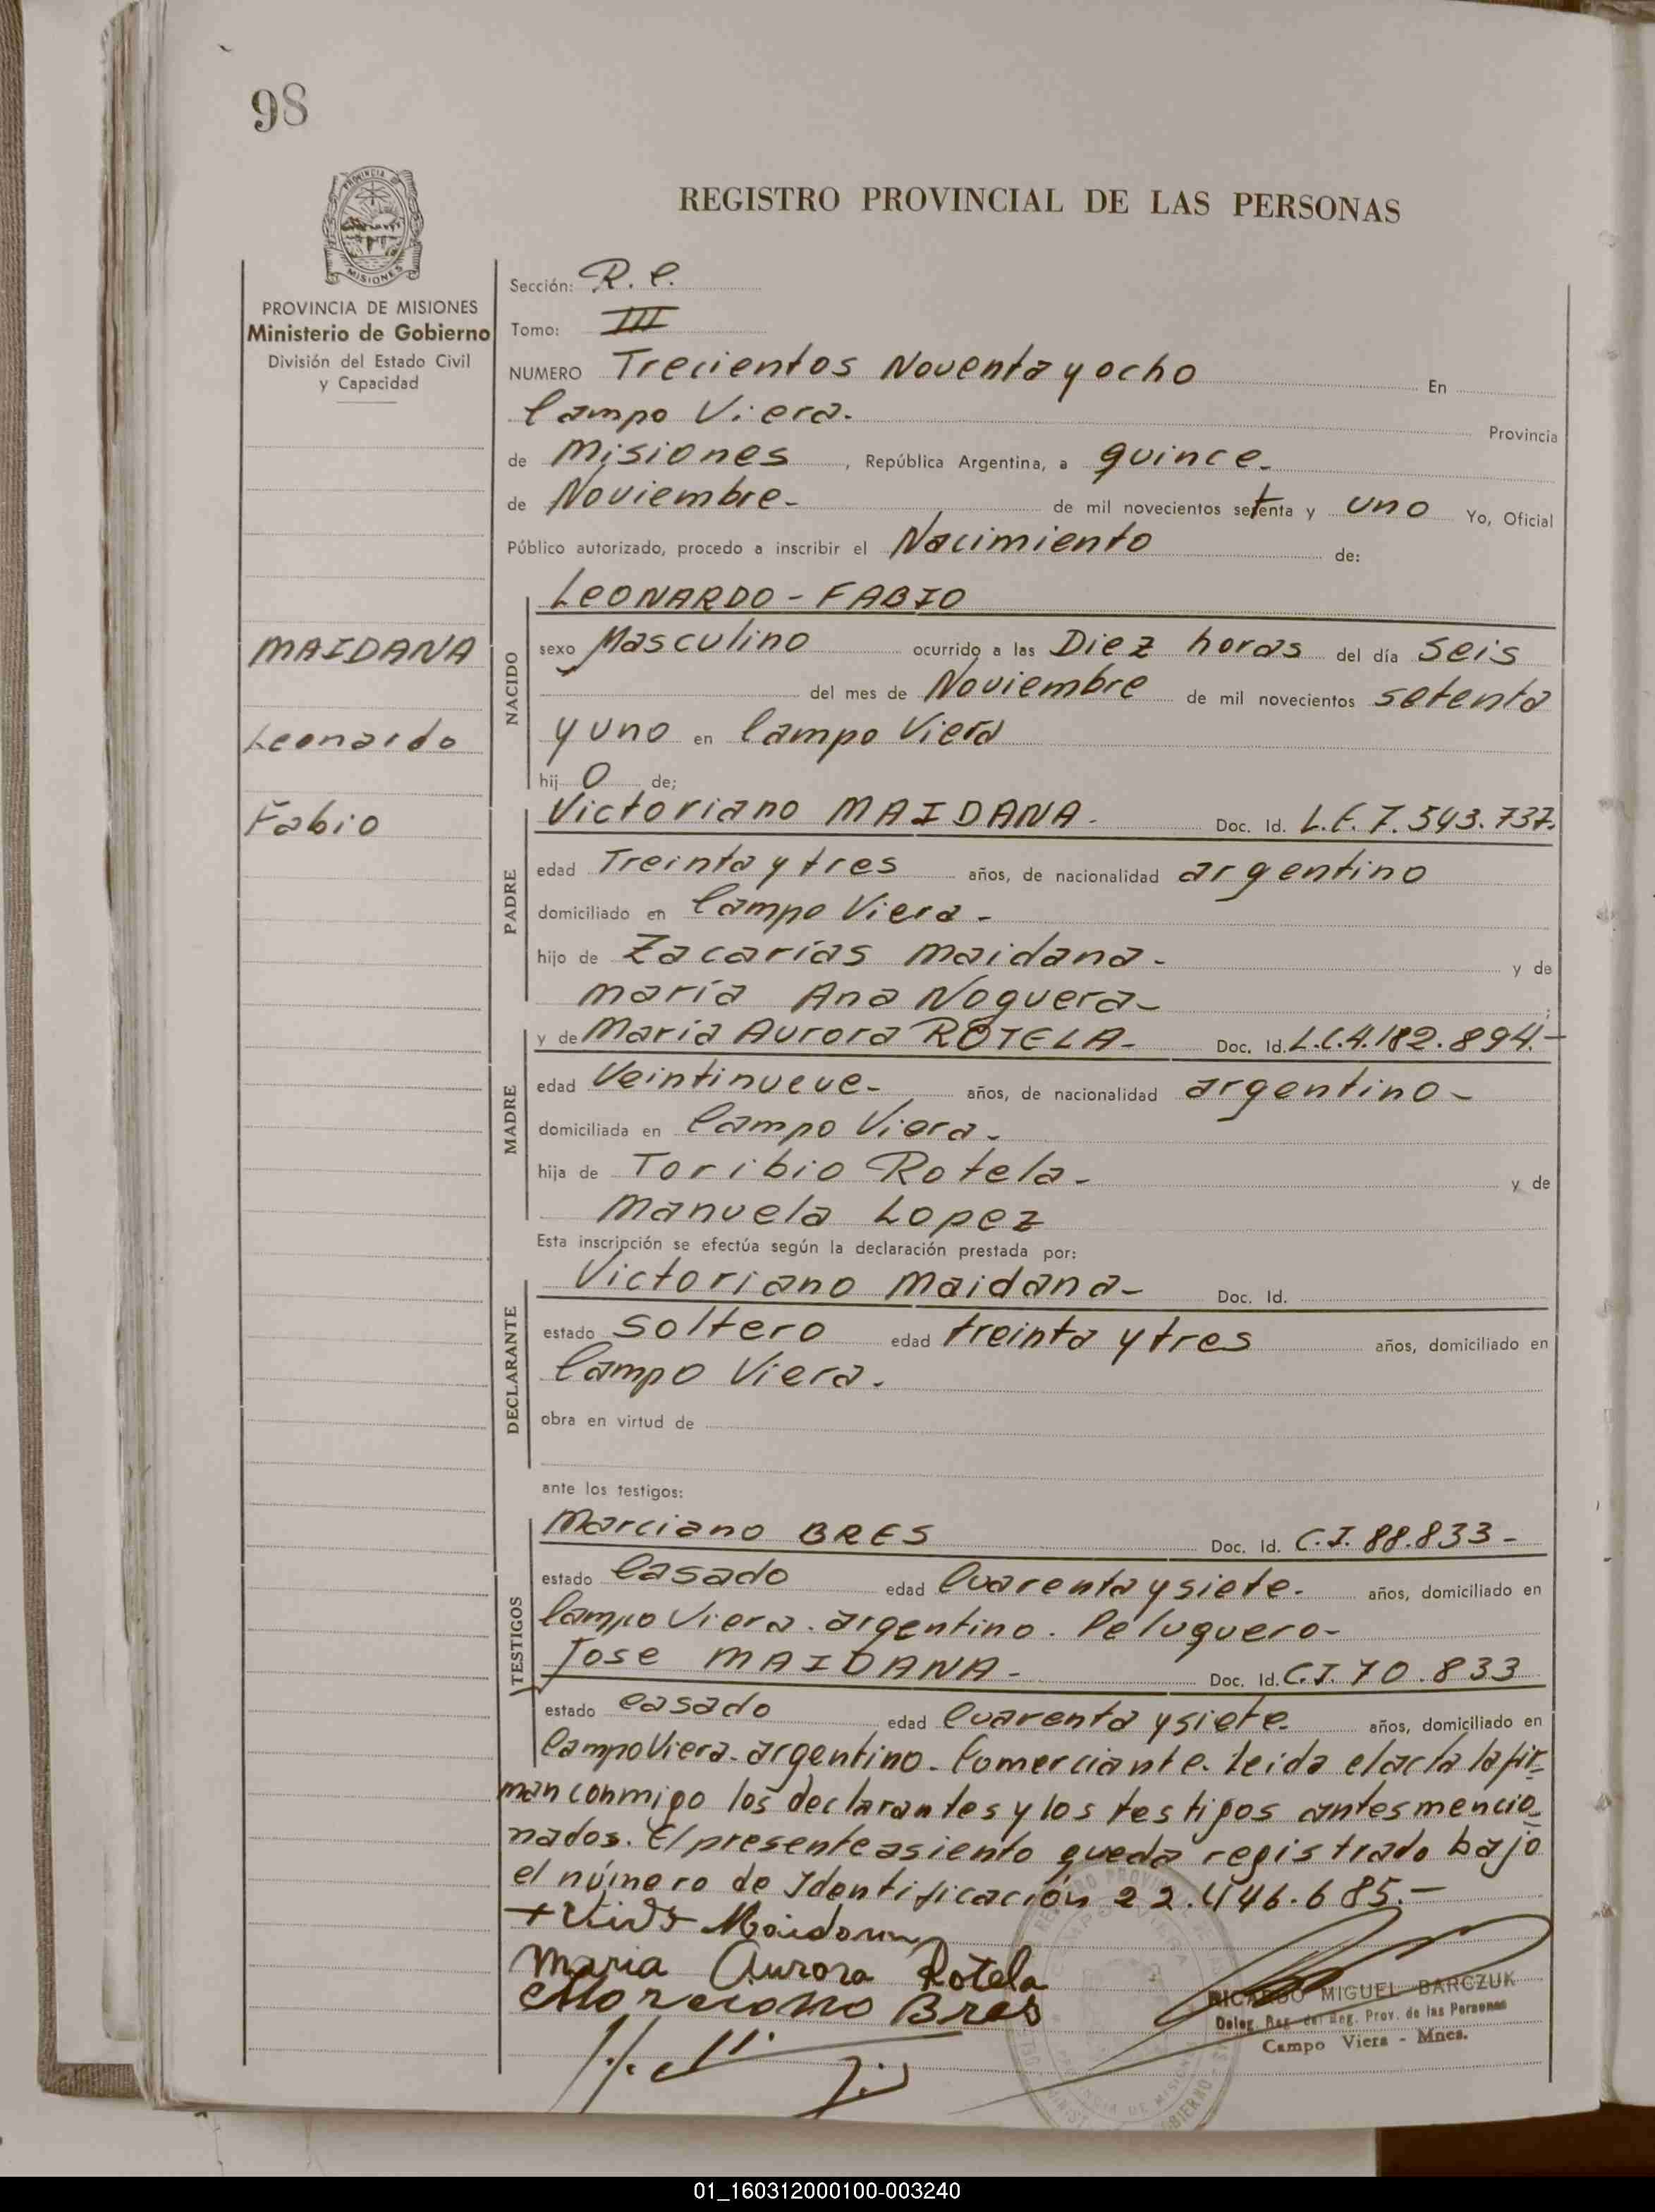 98
REGISTRO PROVINCIAL DE LAS PERSONAS
PROVINCIA DE MISIONES
Ministerio de Gobierno
División del Estado Civil
y Capacidad
MAIDANA
Leonardo
Fabio
Sección: R. C.
Tomo: III
NUMERO Trecientos Noventa y ocho En
Campo Viera. Provincia
de Misiones, República Argentina, a quince
de Noviembre- de mil novecientos setenta y uno Yo, Oficial
Público autorizado, procedo a inscribir el Nacimiento de:
NACIDO
LEONARDO - FABIO
sexo Masculino ocurrido a las Diez horas del día seis
del mes de Noviembre de mil novecientos setenta
y uno en Campo Viera
hij o de;
PADRE
Victoriano MAIDANA. Doc. Id. L.E. 7.543.737.
edad Treinta y tres años, de nacionalidad argentino
domiciliado en Campo Viera-
hijo de Zacarías maidana- y de
maría Ana Noguera-
MADRE
y de María Aurora ROTELA- Doc. Id. L.C.4.182.894.-
edad Veintinueve- años, de nacionalidad argentino-
domiciliada en Campo Viera.
hija de Toribio Rotela- y de
manuela Lopez
Esta inscripción se efectúa según la declaración prestada por:
DECLARANTE
Victoriano maidana- Doc. Id.
estado soltero edad treinta y tres años, domiciliado en
Campo Viera.
obra en virtud de
ante los testigos:
TESTIGOS
Marciano BRES Doc. Id. C.I. 88.833-
estado Casado edad Cuarenta y siete. años, domiciliado en
Campo Viera. argentino. Peluquero-
Jose MAIDANA- Doc. Id. C.I. 70.833
estado casado edad Cuarenta y siete. años, domiciliado en
Campo Viera. argentino. Comerciante. Leida el acta la fir-
man conmigo los declarantes y los testigos antes mencio-
nados. El presente asiento queda registrado bajo
el número de Identificación 22.446.685.-
Maidana
Maria Aurora Rotela
Marciano Bres
RICARDO MIGUEL BARCZUK
Deleg. Reg. del Reg. Prov. de las Personas
Campo Viera - Mnes.
01_160312000100-003240